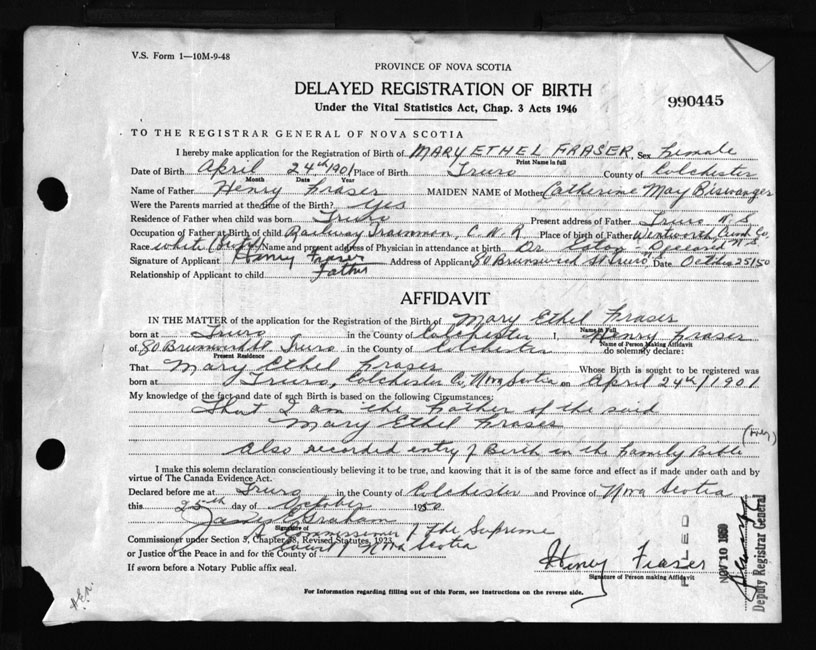 V.S. Form 1—10M-9-48
PROVINCE OF NOVA SCOTIA
DELAYED REGISTRATION OF BIRTH
990445
Under the Vital Statistics Act, Chap. 3 Acts 1946
TO THE REGISTRAR GENERAL OF NOVA SCOTIA
I hereby make application for the Registration of Birth of MARY ETHEL FRASER, Sex Female
Print Name in full
Date of Birth April 24th 1901 Place of Birth Truro County of Colchester
Month Date Year
Name of Father Henry Fraser MAIDEN NAME of Mother Catherine May Biswanger
Were the Parents married at the time of the Birth? Yes
Residence of Father when child was born Truro Present address of Father Truro N.S.
Occupation of Father at Birth of child Railway Trainman, C.N.R Place of birth of Father Wentworth, Cumb. Co,
Race White Name and present address of Physician in attendance at birth Dr. "Deceased" N.S.
Signature of Applicant Henry Fraser Address of Applicant 80 Brunswick St Truro Date October 25/50
Relationship of Applicant to child Father
AFFIDAVIT
IN THE MATTER of the application for the Registration of the Birth of Mary Ethel Fraser
Name in Full
born at Truro in the County of Colchester I, Henry Fraser
Name of Person Making Affidavit
of 80 Brunswick St Truro in the County of Colchester do solemnly declare:
Present Residence
That Mary Ethel Fraser Whose Birth is sought to be registered was
born at Truro, Colchester Co, Nova Scotia on April 24th/1901
My knowledge of the fact and date of such Birth is based on the following Circumstances:
That I am the Father of the said
Mary Ethel Fraser
Also recorded entry of Birth in the Family Bible
I make this solemn declaration conscientiously believing it to be true, and knowing that it is of the same force and effect as if made under oath and by
virtue of The Canada Evidence Act.
Declared before me at Truro in the County of Colchester and Province of Nova Scotia
this 25th day of October 1950
James E Graham
Signature of
A Commissioner of The Supreme
Commissioner under Section 5, Chapter 38, Revised Statutes, 1923
Court of Nova Scotia
or Justice of the Peace in and for the County of
If sworn before a Notary Public affix seal.
Henry Fraser
Signature of Person making Affidavit
FILED
NOV 10 1950
Deputy Registrar General
For Information regarding filling out of this Form, see Instructions on the reverse side.